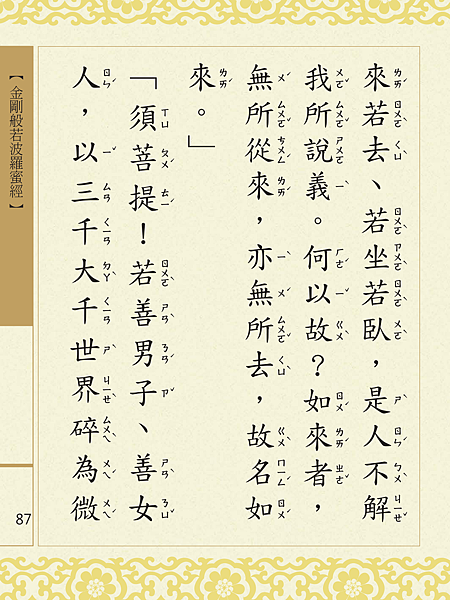 來若去、若坐若臥，是人不解
我所說義。何以故？如來者，
無所從來，亦無所去，故名如
來。」
「須菩提！若善男子、善女
人，以三千大千世界碎為微
【金剛般若波羅蜜經】
87